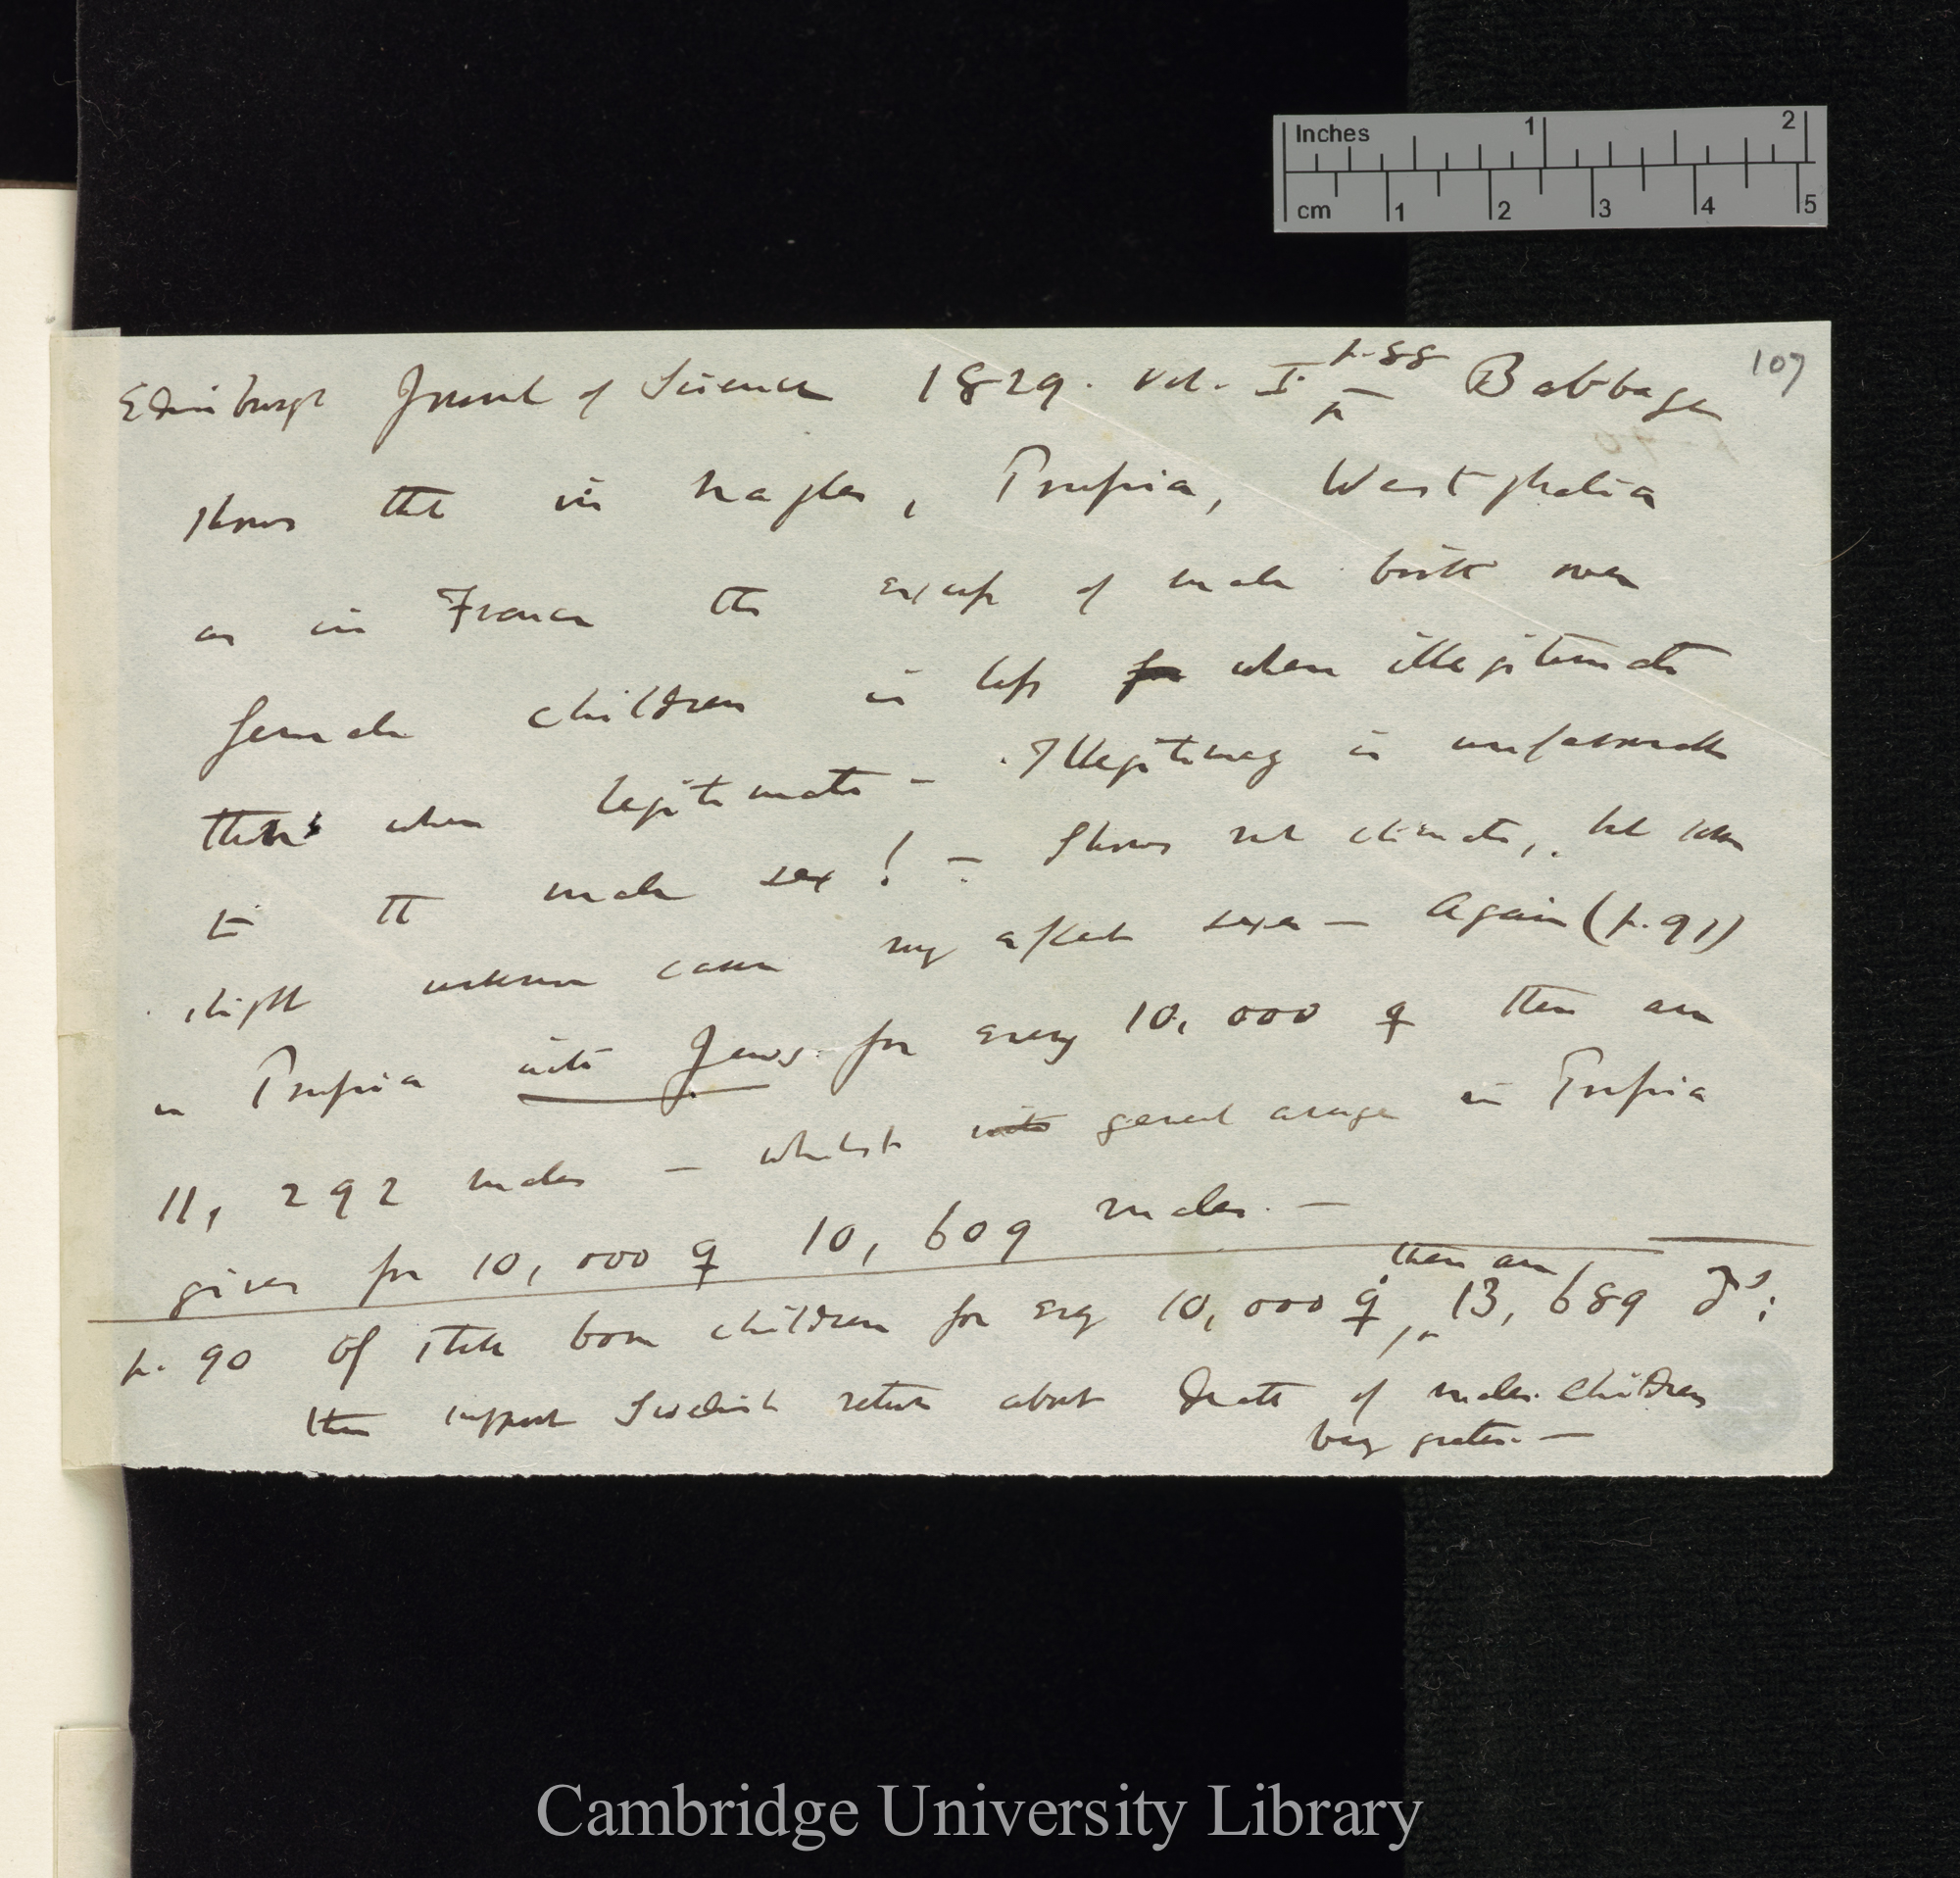 Inches 1 2
cm 1 2 3 4 5
107
p. 88
Edinburgh Journal of Science 1829. vol. I. Babbage
shows that in Naples, Prussia, Westphalia
as in France the excess of male births over
female children is less for when illegitimate
than when legitimate — Illegitimacy is unfavourable
to the male sex! — Shows not climate, but some
slight unknown cause may affect sexes — Again (p. 91)
in Prussia with Jews for every 10,000 ♀ there are
11,292 males — whilst with general average in Prussia
gives for 10,000 ♀ 10,609 males. —
there are
p. 90 Of still born children for every 10,000 ♀, 13,689 ♂s;
this support Swedish return about death of males children
being greater. —
Cambridge University Library